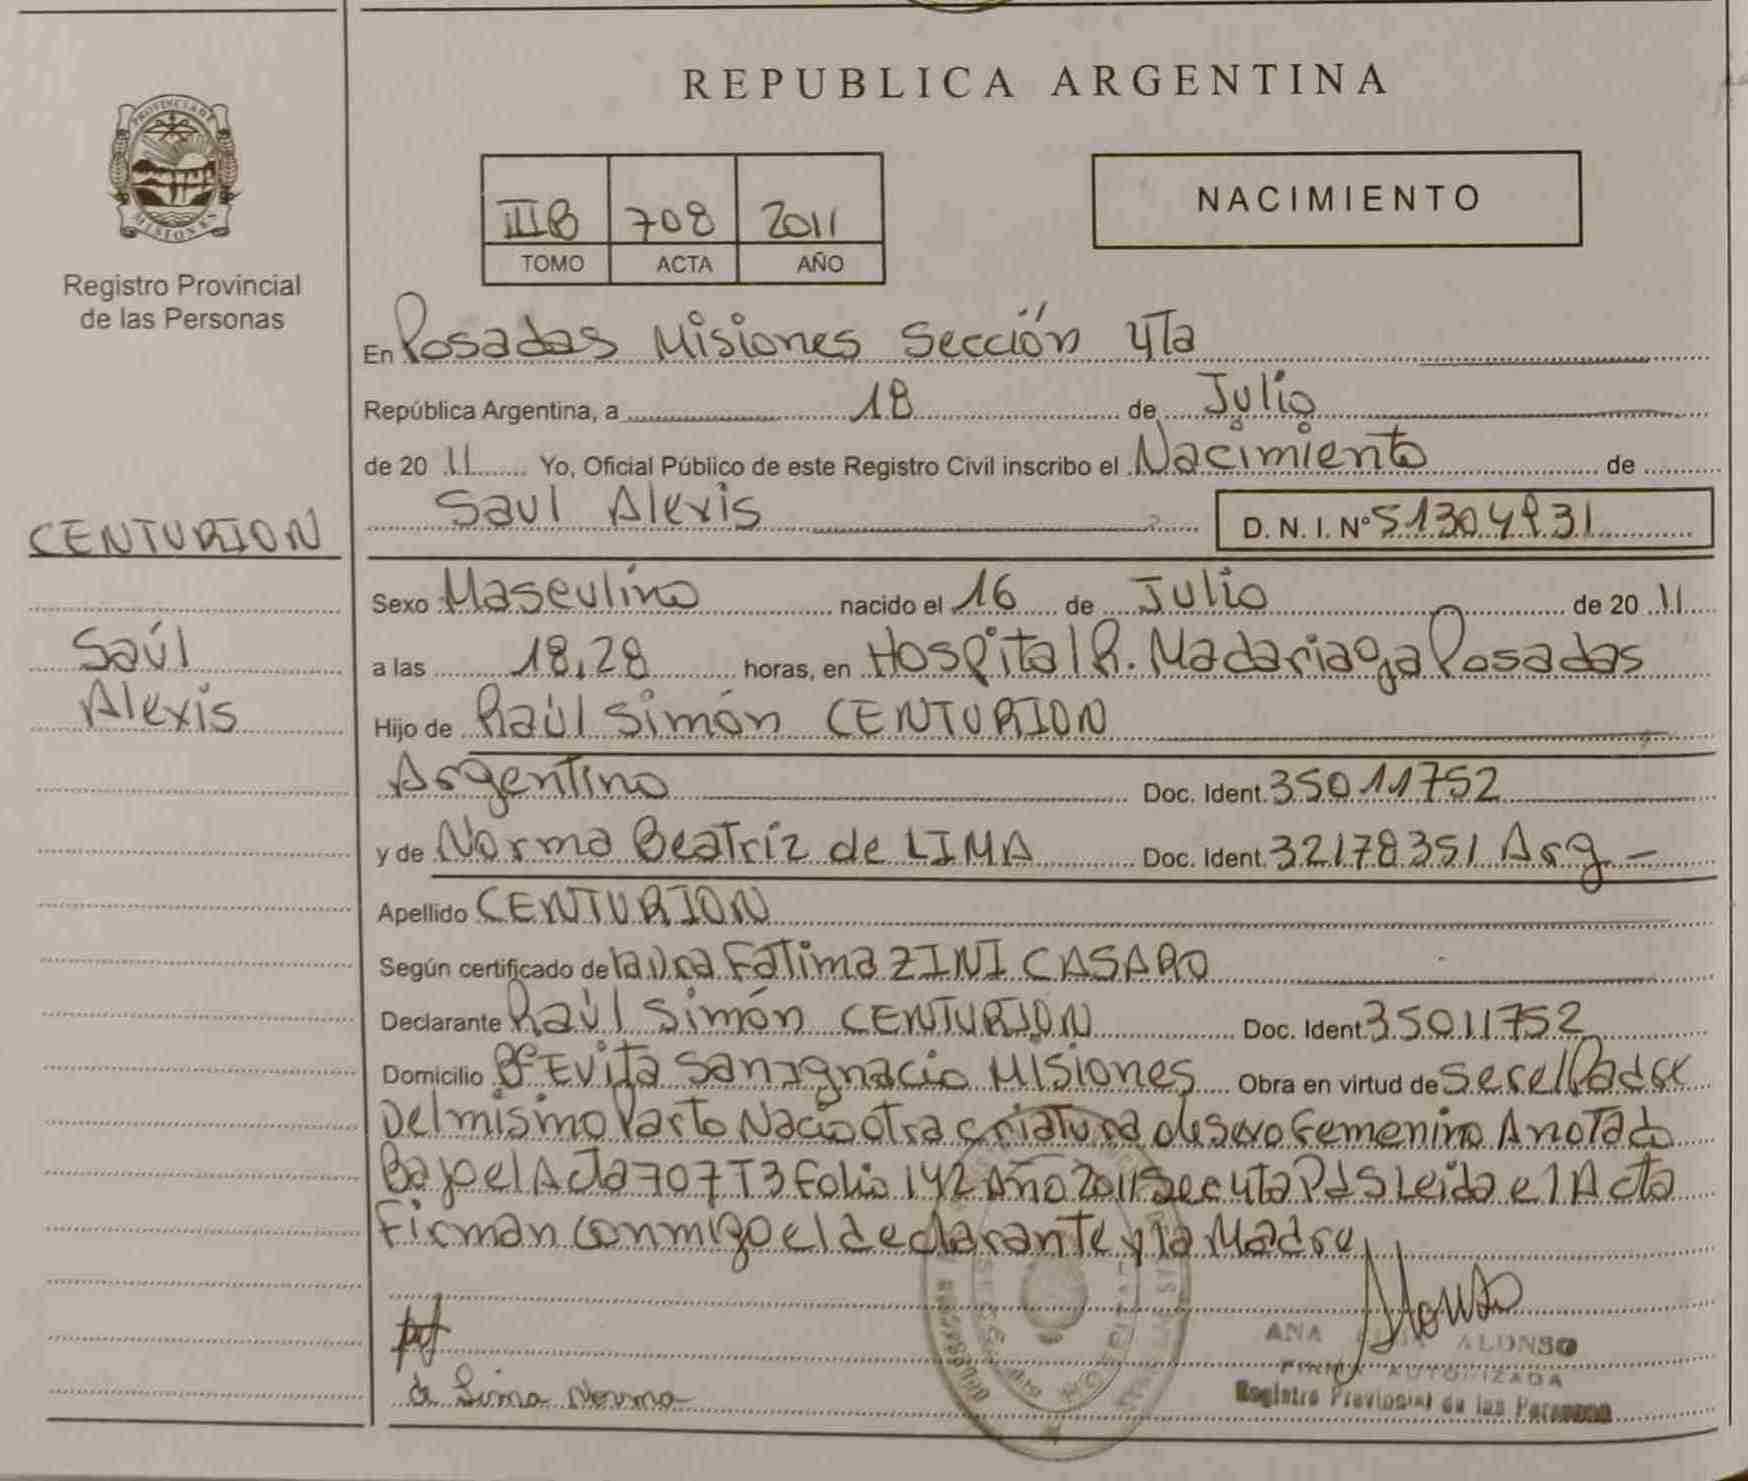 PROVINCIA DE MISIONES
Registro Provincial
de las Personas
CENTURION
Saúl
Alexis
REPUBLICA ARGENTINA
IIIB 708 2011
TOMO ACTA AÑO
NACIMIENTO
En Posadas Misiones Sección 4Ta
República Argentina, a 18 de Julio
de 2011 Yo, Oficial Público de este Registro Civil inscribo el Nacimiento de
Saul Alexis D. N. I. Nº 51304931
Sexo Masculino nacido el 16 de Julio de 2011
a las 18,28 horas, en Hospital R. Madariaga Posadas
Hijo de Raúl Simón CENTURION
Argentino Doc. Ident. 35011752
y de Norma Beatríz de LIMA Doc. Ident. 32178351 Arg -
Apellido CENTURION
Según certificado de la Dra Fatima ZINI CASARO
Declarante Raúl Simón CENTURION Doc. Ident. 35011752
Domicilio Bº Evita San Ignacio Misiones Obra en virtud de Ser el Padre
Del mismo Parto Nacio otra criatura de sexo femenino Anotado
Bajo el Acta 707 T3 Folio 142 Año 2011 Sec 4ta Pds Leida el Acta
Firman conmigo el declarante y la Madre
de Lima Norma
ANA ALONSO
FIRMA AUTORIZADA
Registro Provincial de las Personas